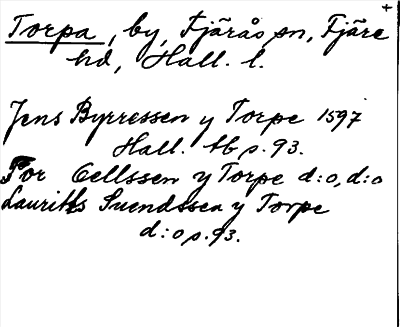 +
Torpa, by, Fjärås sn, Fjäre
hd, Hall. l.
Jens Byrressen y Torpe 1597
Hall. tb s. 93.
Por Cellssen y Torpe d:o, d:o
Lauritts Suendssen y Torpe
d:o s. 93.